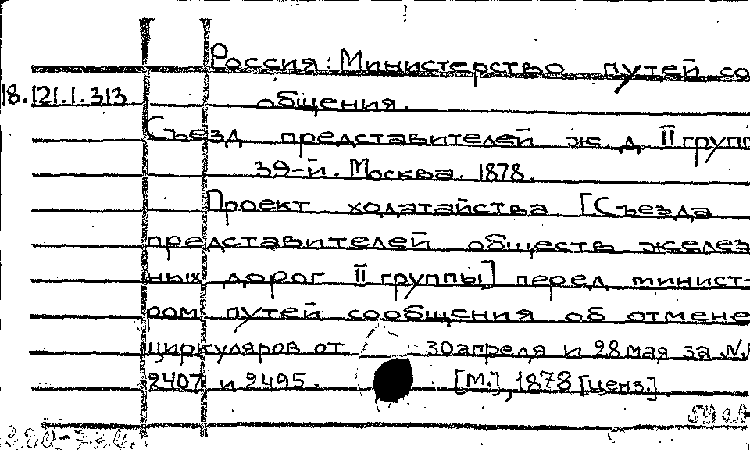 Россия: Министерство путей со
18.121.1.313 общения.
Съезд представителей ж д II групп
39-й. Москва. 1878.
Проект ходатайства [Съезда
представителей обществ желез
ных дорог II группы] перед минист-
ром путей сообщения об отмене
циркуляров от 30 апреля и 28 мая за №
2407 и 2495. [М.], 1878 [ценз.]